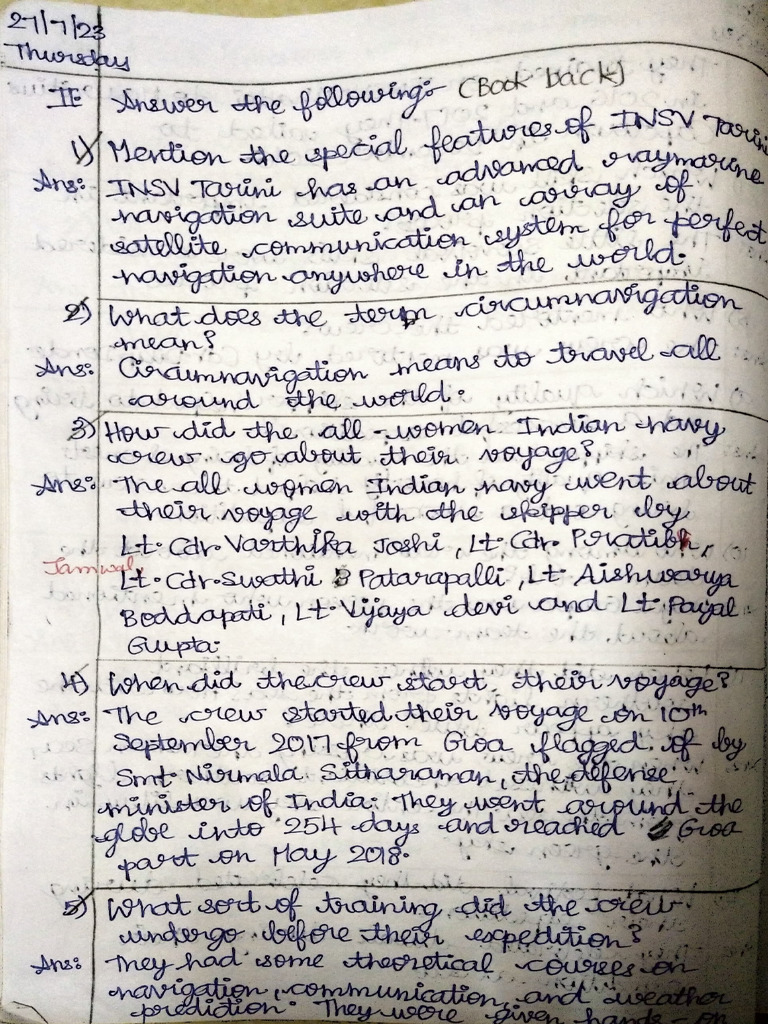 27/7/23
Thursday
II. Answer the following:- (Book back)
1) Mention the special features of INSV Tarini
Ans: INSV Tarini has an advanced raymarine
navigation suite and an array of
satellite communication system for perfect
navigation anywhere in the world.
2) What does the term circumnavigation
mean?
Ans: Circumnavigation means to travel all
around the world.
3) How did the all-women Indian navy
crew go about their voyage?
Ans: The all women Indian navy went about
their voyage with the skipper by
Lt. Cdr. Varthika Joshi, Lt. Cdr. Pratibh,
Jamwal, Lt. Cdr. Swathi Patarapalli, Lt Aishwarya
Boddapati, Lt. Vijaya devi and Lt. Payal
Gupta.
4) When did the crew start their voyage?
Ans: The crew started their voyage on 10th
September 2017 from Goa flagged of by
Smt. Nirmala Sitharaman, the defense
minister of India. They went around the
globe into 254 days and reached Goa
part on May 2018.
5) What sort of training did the crew
undergo before their expedition?
Ans: They had some theoretical courses on
navigation, communication, and weather
prediction. They were given hands-on